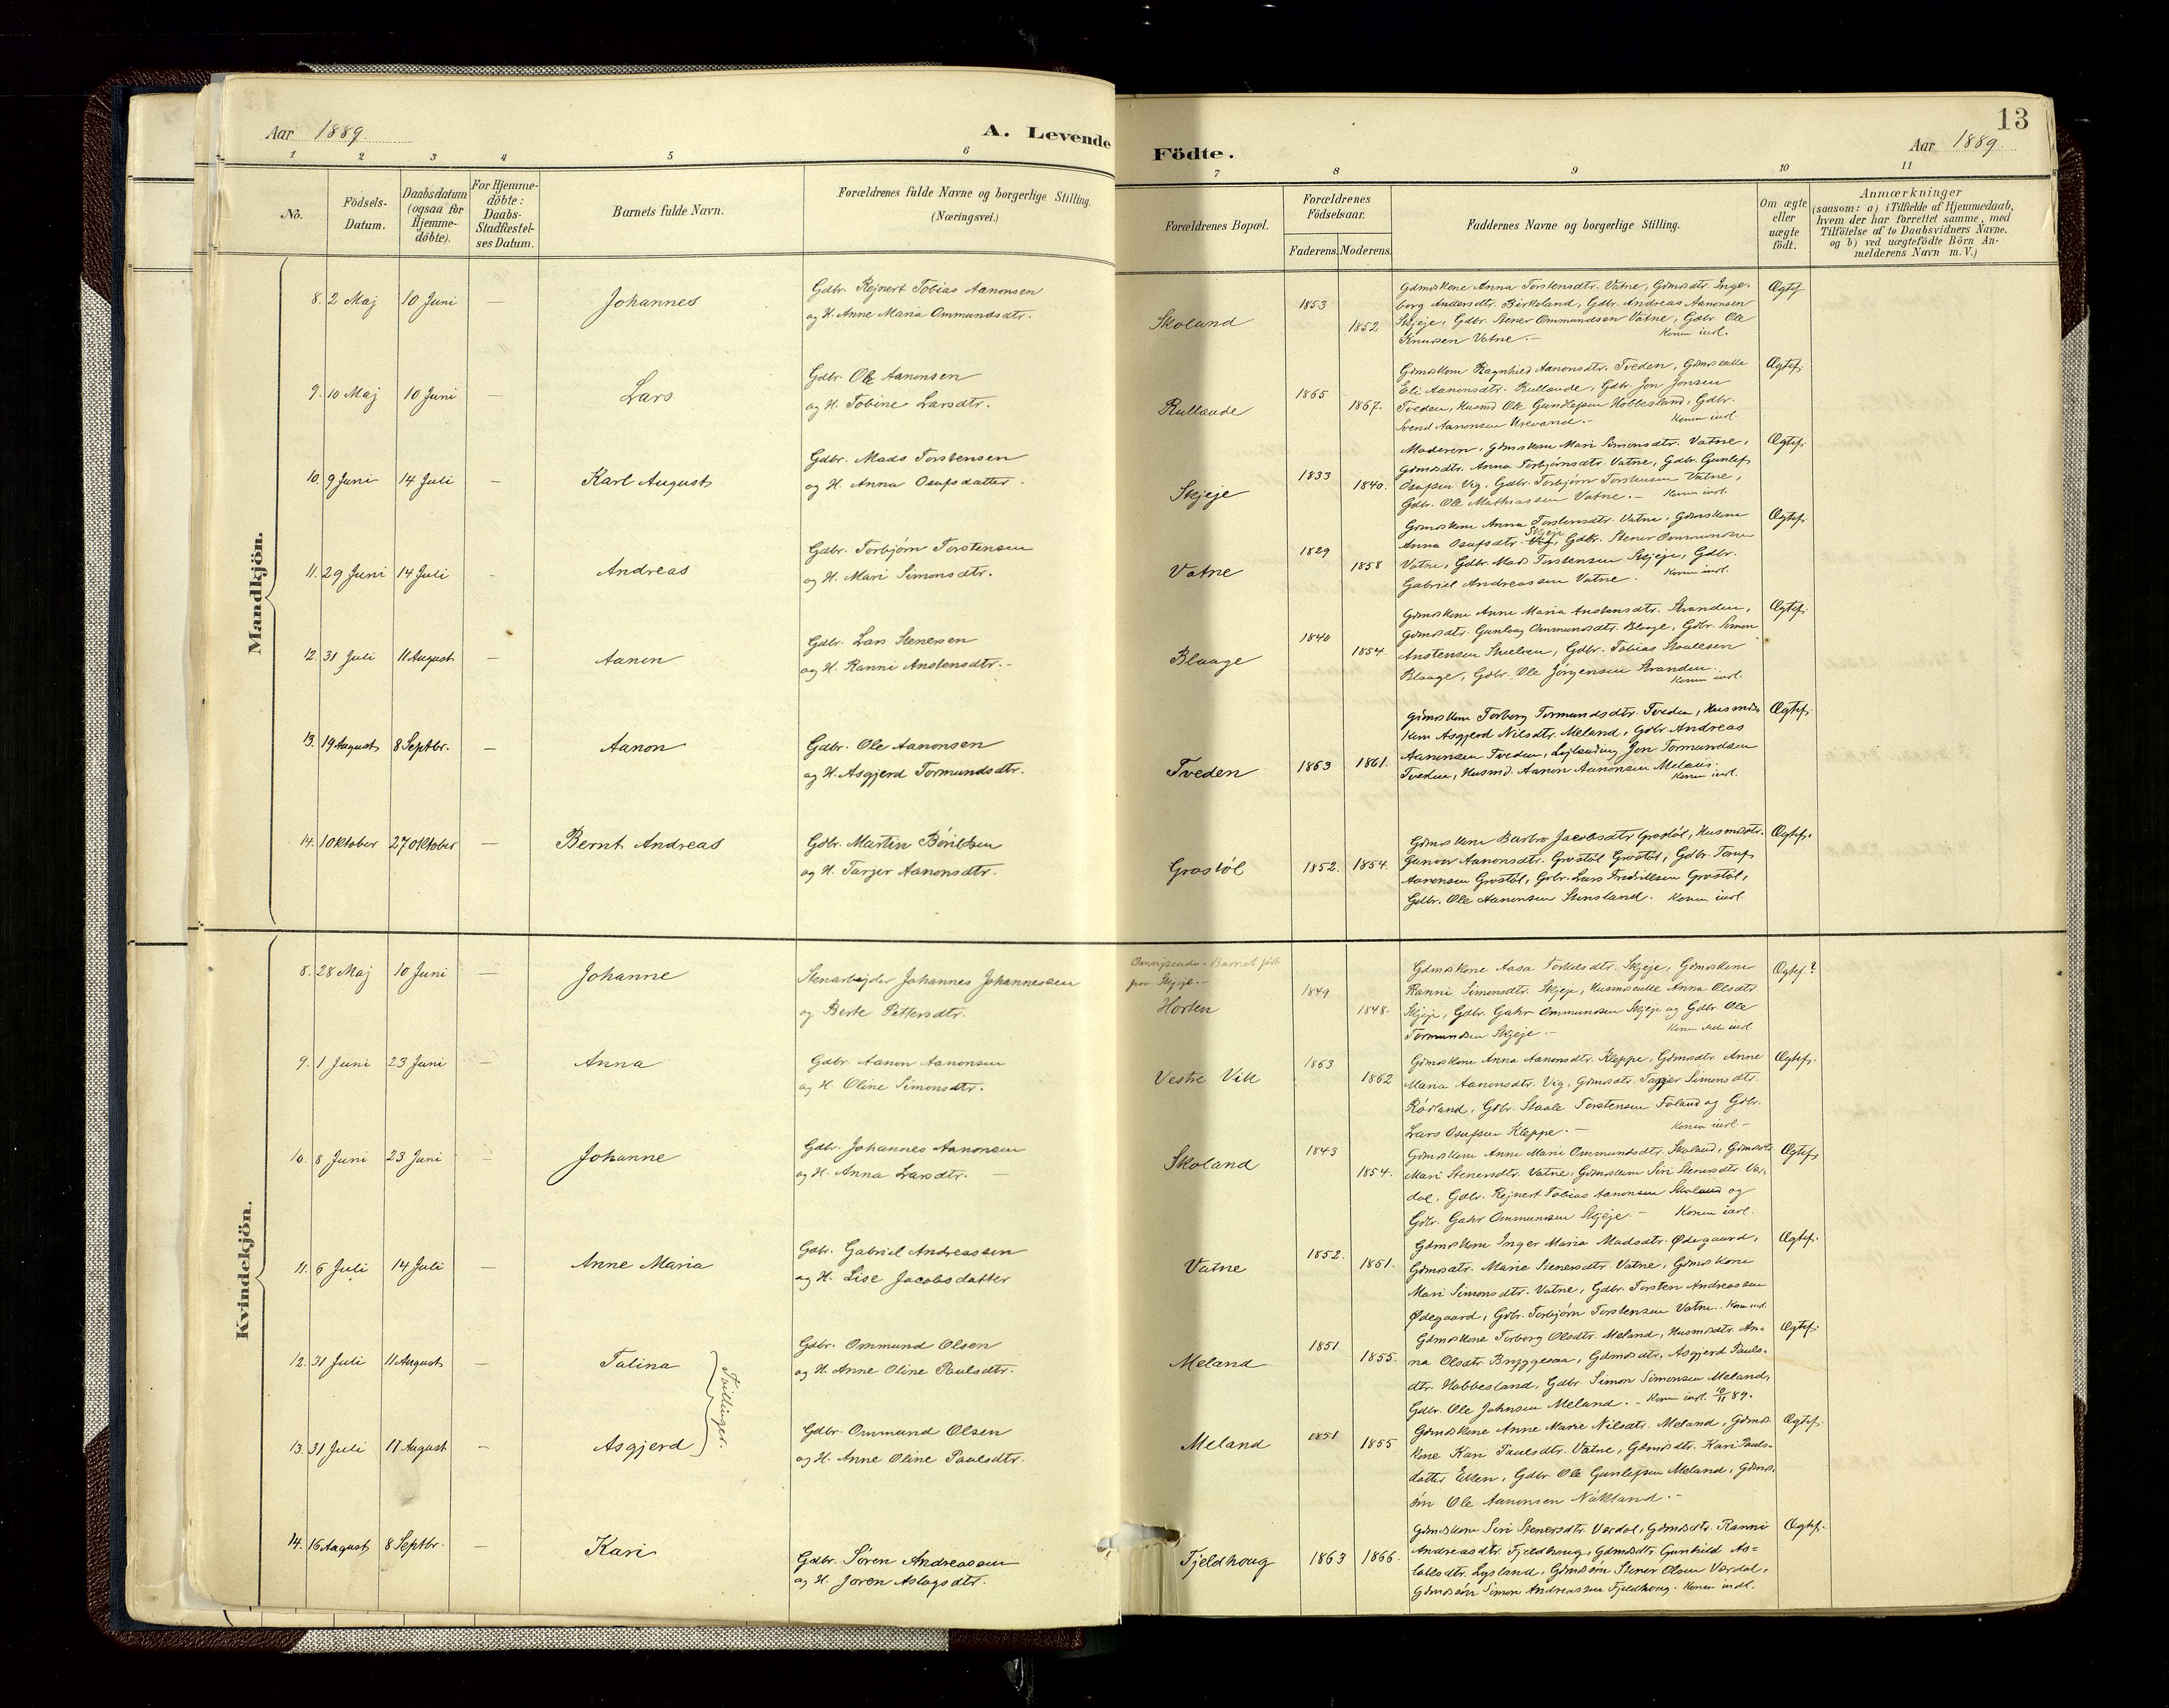 13
Aar 1889.
A. Levende Födte.
Aar 1889.
1 2 3 4 5 6 7 8 9 10 11
No.
Födsels-Datum.
Daabsdatum (ogsaa for Hjemme-döbte).
For Hjemme-döbte: Daabs-Stadfæstel-ses Datum.
Barnets fulde Navn.
Forældrenes fulde Navne og borgerlige Stilling.
(Næringsvei.)
Forældrenes Bopæl.
Forældrenes Födselsaar.
Faderens. Moderens.
Faddernes Navne og borgerlige Stilling.
Om ægte eller uægte födt.
Anmærkninger
(saasom: a) i Tilfælde af Hjemmedaab,
hvem der har forrettet samme, med
Tilföielse af to Daabsvidners Navne,
og b) ved uægtefödte Börn An-
melderens Navn m. V.)
Mandkjön.
8. 2 Maj 10 Juni — Johannes
Gdbr. Rejnert Tobias Aanonsen
og H. Anne Maria Ommundsdtr.
Skoland 1853 1852
Gdmdskone Anna Torstensdtr. Vatne, Gdmdsdtr. Inge-
borg Andersdtr. Birkeland, Gdbr. Andreas Aanonsen
Skjeje, Gdbr. Stener Ommundsen Vatne, Gdbr. Ole
Knutsen Vatne. — Konen indl.
Ægtef
9. 10 Maj 10 Juni — Lars
Gdbr. Ole Aanonsen
og H. Tobine Larsdtr.
Rullande 1865 1867.
Gdmdskone Ragnhild Aanonsdtr. Tveden, Gdmdsenke
Eli Aanonsdtr. Rullande, Gdbr. Jon Jonsen
Tveden, Husmd Ole Gundlefsen Hobbesland, Gdbr.
Svend Aanonsen Urevand. — Konen indl.
Ægtef.
10. 9 Juni 14 Juli — Karl August
Gdbr. Mads Torstensen
og H. Anna Osufsdatter.
Skjeje 1833 1840.
Moderen, Gdmdskone Mari Simonsdtr. Vatne,
Gdmdsdtr. Anna Torbjørnsdtr. Vatne, Gdbr. Gunlef
Osufsen Vig, Gdbr. Torbjørn Torstensen Vatne,
Gdbr. Ole Mathiassen Vatne. — Konen indl.
Ægtef.
11. 29 Juni 14 Juli - Andreas
Gdbr. Torbjørn Torstensen
og H. Mari Simonsdtr.
Vatne 1829 1858
Gdmdskone Anna Torstensdtr. Vatne, Gdmdskone
Anna Osufsdtr. Skjeje, Gdbr. Stener Ommundsen
Vatne, Gdbr. Mads Torstensen Skjeje, Gdbr.
Gabriel Andreassen Vatne. Konen indl.
Ægtef.
12. 31 Juli 11 August — Aanen
Gdbr. Lars Stenersen
og H. Ranni Anstensdtr. -
Blaage 1840 1854.
Gdmdskone Anne Maria Anstensdtr. Stranden,
Gdmdsdtr. Gunlaug Ommundsdtr. Blaage, Gdbr. Simon
Anstensen, Gdbr. Tobias Staalesen
Blaage, Gdbr. Ole Jørgensen Stranden.
Konen indl.
Ægtef.
13. 19 August 8 Septbr. — Aanon
Gdbr. Ole Aanonsen
og H. Asgjerd Tormundsdtr.
Tveden 1863 1861.
Gdmdskone Torborg Tormundsdtr. Tveden, Husmds-
kone Asgjerd Nilsdtr. Meland, Gdbr. Andreas
Aanonsen Tveden, Lejlending Jon Tormundsen
Tveden, Husmd. Aanon Aanonsen
Konen indl.
Ægtef.
14. 1 Oktober 27 Oktober — Bernt Andreas
Gdbr. Martin
og H. Tarjer Aanonsdtr.
Grostöl 1852. 1854.
Gdmdskone Barbro Jacobsdtr. Grostöl, Husmdsdtr.
Gunvor Aanonsdtr. Grostöl Grostöl, Gdbr. Toruf
Aanonsen Grostöl, Gdbr. Lars Fredriksen Grostöl,
Gdbr. Ole Aanonsen Stensland. Konen indl.
Ægtef.
Kvindekjön.
8. 28 Maj 10 Juni — Johanne
Stenarbejder Johannes Johannessen
og Berte Pettersdtr.
Omrejsende. Barnet født
paa Skjeje. —
Horten 1849 1848.
Gdmdskone Aasa Torkelsdtr. Skjeje, Gdmdskone
Ranni Simonsdtr. Skjeje, Husmdsenke Anna Olsdtr.
Skjeje, Gdbr. Gahr Ommundsen Skjeje og Gdbr. Ole
Tormundsen Skjeje. — Konen ikke indl.
Ægtef.?
9. 1 Juni 23 Juni — Anna
Gdbr. Aanon Aanonsen
og H. Oline Simonsdtr.
Vestre Vik 1863 1862
Gdmdskone Anna Aanonsdtr. Kleppe, Gdmdsdtr. Anne
Maria Aanonsdtr. Vig, Gdmdsdtr. Tarjer Simonsdtr.
Rørland, Gdbr. Staale Torstensen Foland og Gdbr.
Lars Osufsen Kleppe. — Konen indl. —
Ægtef.
10. 8 Juni 23 Juni — Johanne
Gdbr. Johannes Aanonsen
og H. Anna Larsdtr. —
Skoland 1843 1854.
Gdmdskone Anne Marie Ommundsdtr. Skoland, Gdmdsdtr.
Mari Stenersdtr. Vatne, Gdmdskone Siri Stenersdtr. Var-
dal, Gdbr. Rejnert Tobias Aanonsen Skoland og
Gdbr. Gahr Ommundsen Skjeje. — Konen indl.
Ægtef.
11. 6 Juli 14 Juli — Anne Maria
Gdbr. Gabriel Andreassen
og H. Lise Jacobsdatter
Vatne 1852. 1851.
Gdmdskone Inger Maria Madsdtr. Ødegaard,
Gdmdsdtr. Marie Stenersdtr. Vatne, Gdmdskone
Mari Simonsdtr. Vatne, Gdbr. Torsten Andreassen
Ødegaard, Gdbr. Torbjørn Torstensen Vatne. Konen indl.
Ægtef.
12. 31 Juli 11 August — Talina
Tvillinger.
Gdbr. Ommund Olsen
og H. Anne Oline Paulsdtr.
Meland 1851 1855.
Gdmdskone Torborg Olsdtr. Meland, Husmdsdtr. An-
na Olsdtr. Bryggesaa, Gdmdsdtr. Asgjerd Pauls-
dtr. Hobbesland, Gdbr. Simon Simonsen Meland,
Gdbr. Ole Johnsen Meland. - Konen indl. 10/11 89.
Ægtef.
13. 31 Juli 11 August — Asgjerd
Gdbr. Ommund Olsen
og H. Anne Oline Paulsdtr.
Meland 1851 1855
Gdmdskone Anne Marie Nilsdtr. Meland, Gdmds-
kone Kari Paulsdtr. Vatne, Gdmdsdtr. Kari Pauls-
datter Eiken, Gdbr. Ole Gunlefsen Meland, Gdmds-
søn Ole Aanonsen Nökland. -
Ægtef.
14. 16 August 8 Septbr. - Kari
Gdbr. Sören Andreassen
og H. Joren Aslagsdtr.
Fjeldhoug 1863 1866.
Gdmdskone Siri Stenersdtr. Vardal, Gdmdsdtr. Ranni
Andreasdtr. Fjeldhoug, Gdmdsdtr. Gunhild As-
laksdtr. Lysland, Gdmdssøn Stener Olsen Vardal,
Gdmdssøn Simon Andreassen Fjeldhoug. Konen indl.
Ægtef.